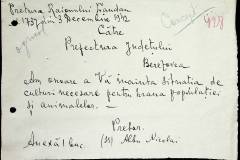 Pretura Raionului Landau
No 1737 din 3 Decembrie 1942
Către
Prefectura Județului
Berezovca
Am onoare a Vă înainta situația de
culturi necesare pentru hrana populației
și animalelor. —
Pretor.
Anexă 1 buc. (ss) Albu Nicolai